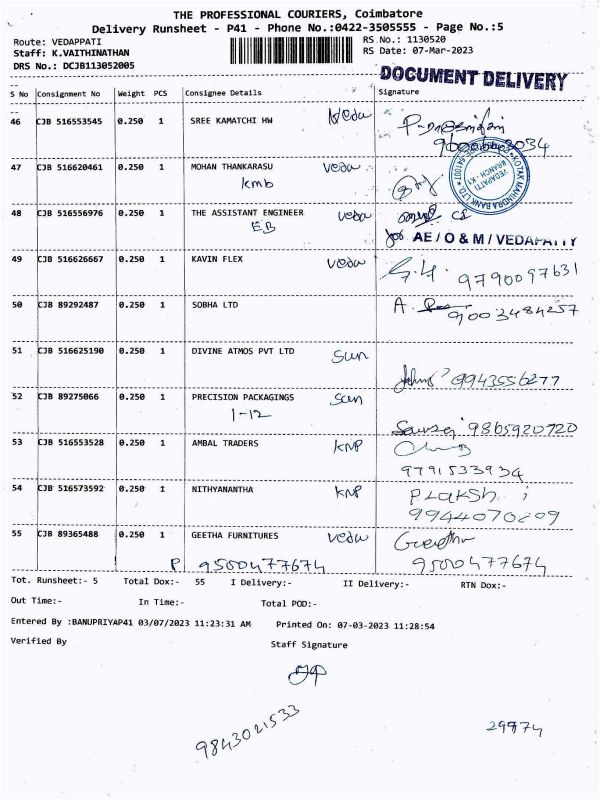 THE PROFESSIONAL COURIERS, Coimbatore
Delivery Runsheet - P41 - Phone No.:0422-3505555 - Page No.:5
Route: VEDAPPATI
RS No.: 1130520
Staff: K.VAITHINATHAN
RS Date: 07-Mar-2023
DRS No.: DCJB113052005
DOCUMENT DELIVERY
S No Consignment No Weight PCS Consignee Details Signature
46 CJB 516553545 0.250 1 SREE KAMATCHI HW Veda
47 CJB 516620461 0.250 1 MOHAN THANKARASU Veda
kmb
KOTAK MAHINDRA BANK LTD
VEDAPATTI
BRANCH - K1
48 CJB 516556976 0.250 1 THE ASSISTANT ENGINEER Veda
EB
for AE / O & M / VEDAPATTY
49 CJB 516626667 0.250 1 KAVIN FLEX Veda
9790097631
50 CJB 89292487 0.250 1 SOBHA LTD A.
9003484257
51 CJB 516625190 0.250 1 DIVINE ATMOS PVT LTD Sun
9943556277
52 CJB 89275066 0.250 1 PRECISION PACKAGINGS Sun
1-12
9865920720
53 CJB 516553528 0.250 1 AMBAL TRADERS KNP
9791533934
54 CJB 516573592 0.250 1 NITHYANANTHA KNP P Laksh i
9944070209
55 CJB 89365488 0.250 1 GEETHA FURNITURES Veda Geetha
P. 9500477674 9500477674
Tot. Runsheet:- 5 Total Dox:- 55 I Delivery:- II Delivery:- RTN Dox:-
Out Time:- In Time:- Total POD:-
Entered By :BANUPRIYAP41 03/07/2023 11:23:31 AM Printed On: 07-03-2023 11:28:54
Verified By Staff Signature
9843021533
29874